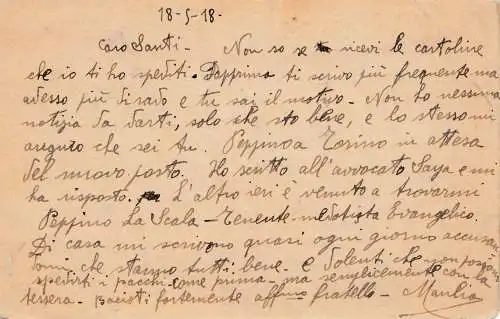 18-5-18-
Caro Santi - Non so se ricevi le cartoline
che io ti ho spediti. Dapprima ti scrivo più frequente ma
adesso più di rado e tu sai il motivo. Non ho nessuna
notizia da darti, solo che sto bene, e lo stesso mi
auguro che sei tu. Peppino a Torino in attesa
del nuovo posto. Ho scritto all'avvocato Saya e mi
ha risposto. L'altro ieri è venuto a trovarmi
Peppino La Scala - Tenente medico Evangelico.
Di casa mi scrivono quasi ogni giorno
che stanno tutti bene. e dolenti che non possono
spedirti i pacchi come prima - ma semplicemente con la
tessera. Bacioti fortemente affmo fratello - Manlio